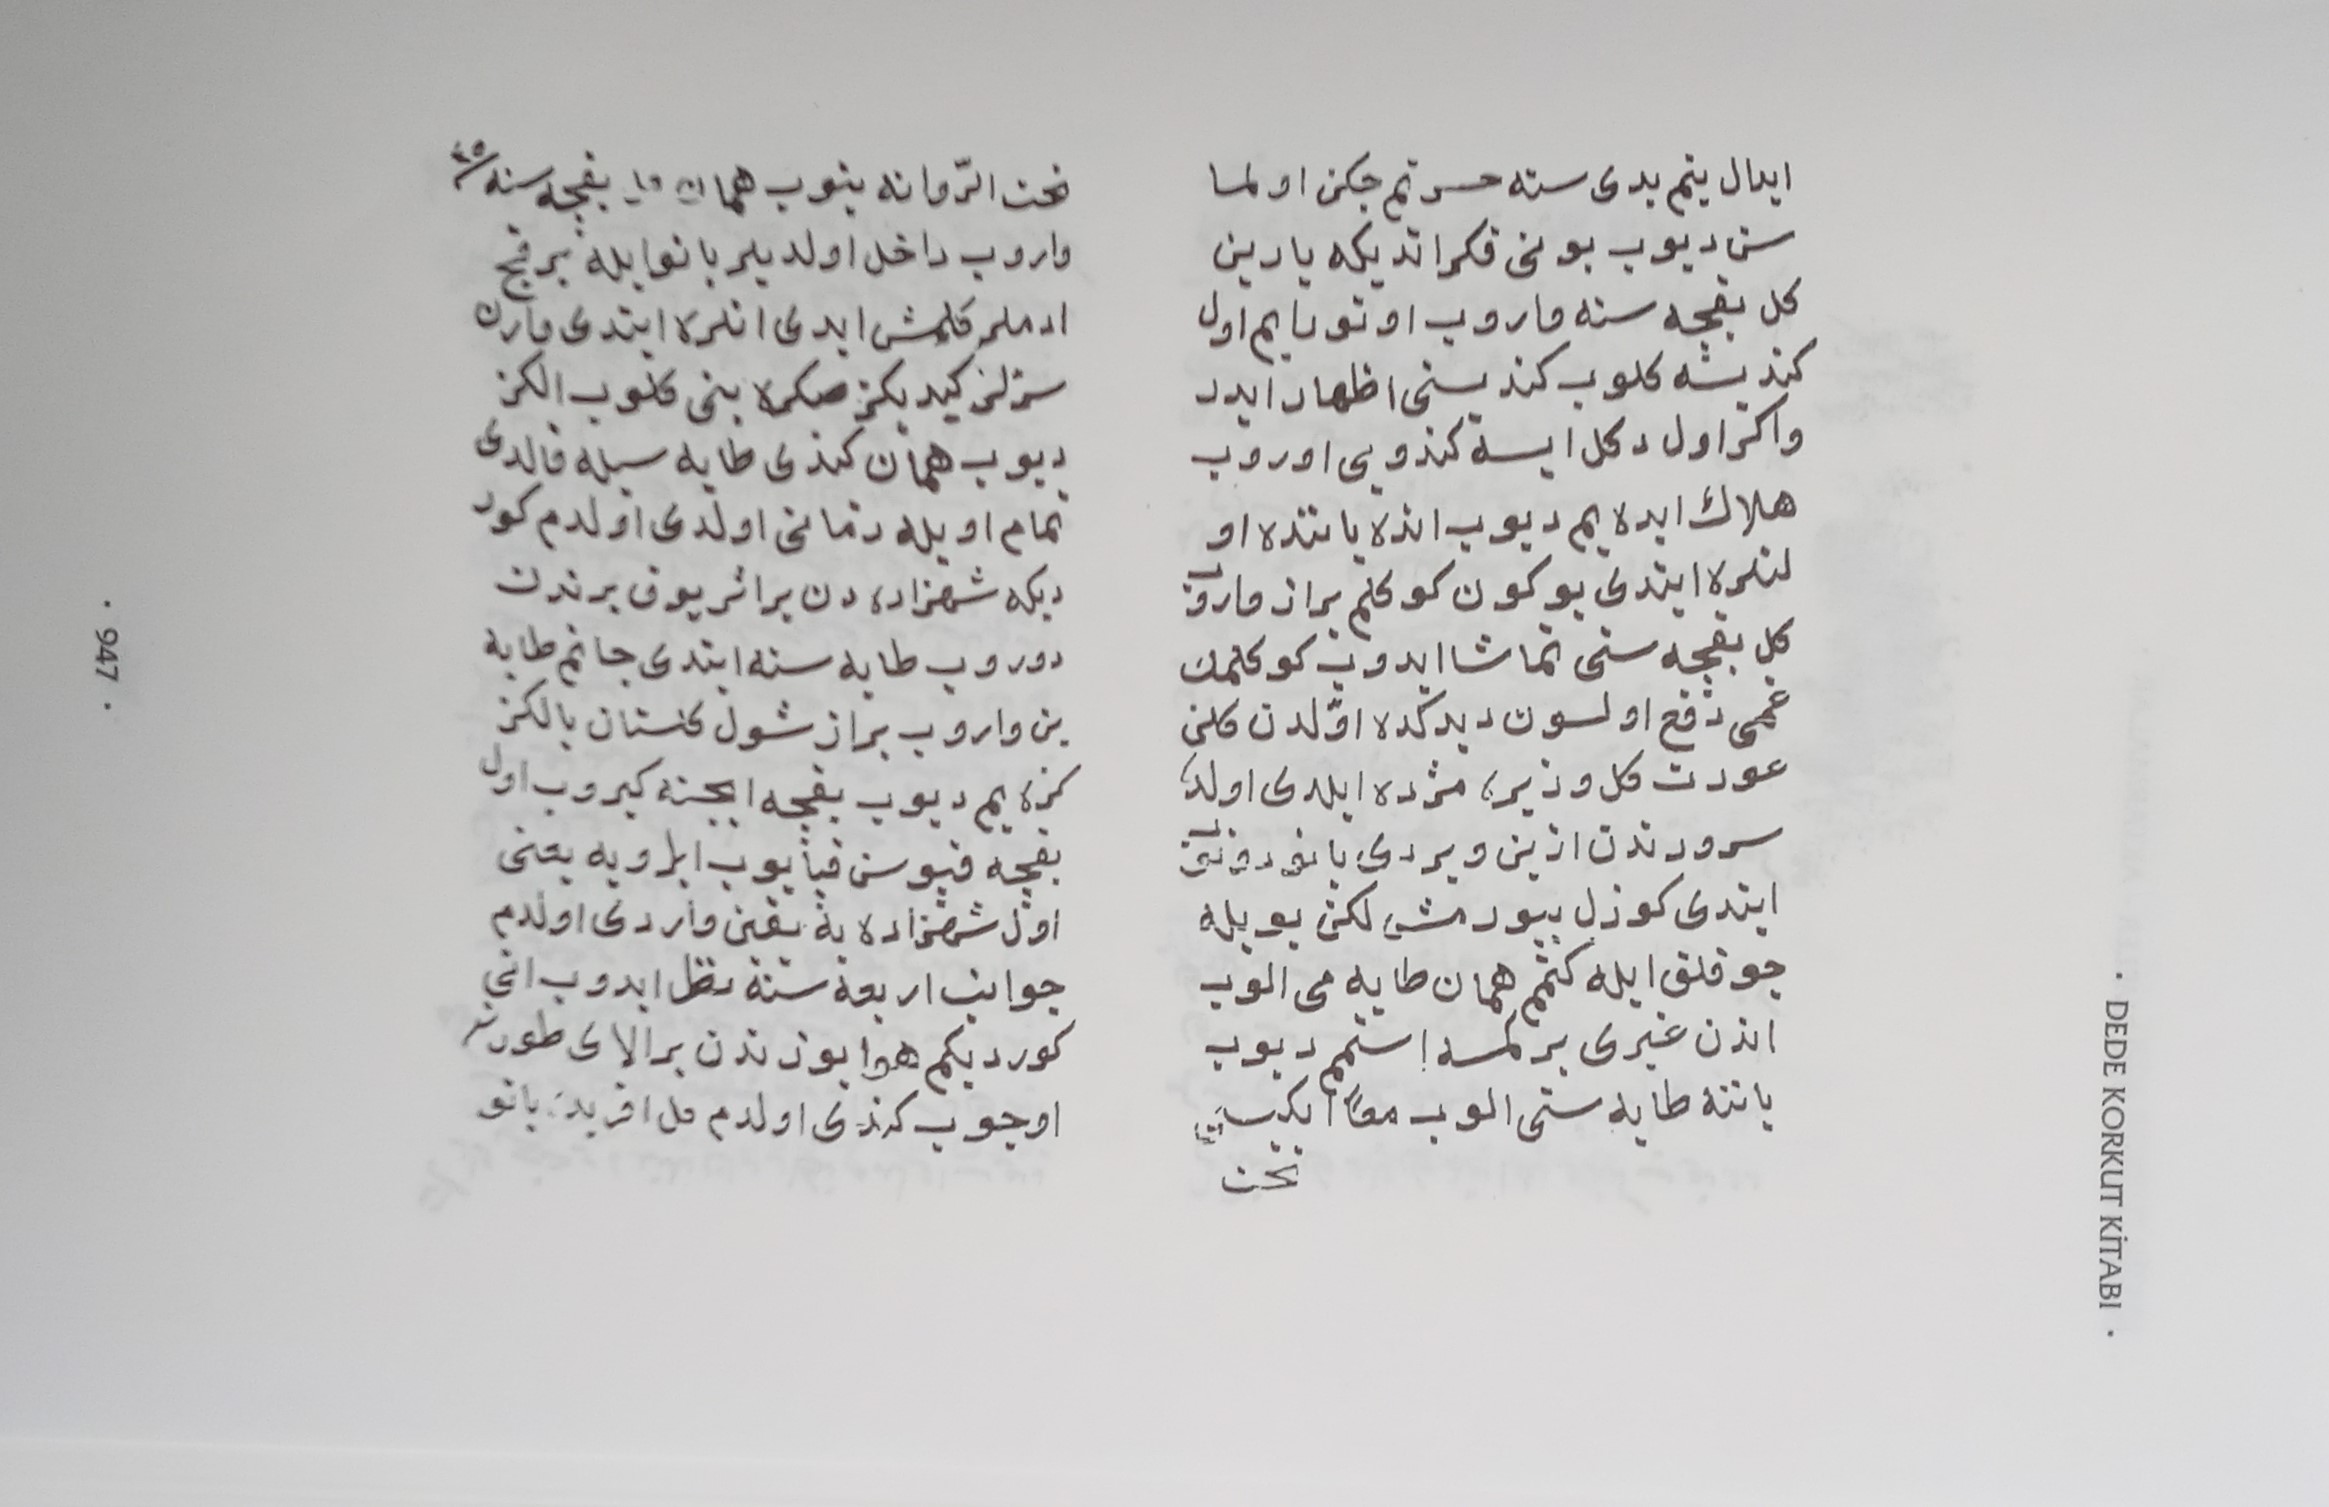 ايدال يتم يدى سنه حسرتم جكن اولما
سن ديوب بونى فكر اتديكه يارين
كل بقچه سنه واروب اوتورايم اول
كنديشه كلوب كنديسنى اظهار ايدر
واكر اول دكل ايسه كندويى اوروب
هلاك ايده يم ديوب انده ياننده او
لنلره ايتدى بو كون كوكلم براز واروب
كل بقچه سنى تماشا ايدوب كوكلمك
غمى دفع اولسون ديدكده اولدن كلن
عورت كل وزيره مژده ايلدى اولده
سرورندن ازين ويردى بانو دونوب
ايتدى كوزل بيورمش لكن بويله
جوقلق ايله كتمم همان طايه مى الوب
اندن غيرى بر كمسه استمم ديوب
يانته طايه سنى الوب معاً ايكيسى
تخت
تخت الرّوانه بنوب همان كل بقچه سنه
واروب داخل اولديلر بانو ايله بر قچ
ادملر كلمش ايدى انلره ايتدى وارك
سزلر كيديكز صكره بنى كلوب الكز
ديوب همان كندى طايه سيله قالدى
تمام اويله زمانى اولدى اولدم كور
ديكه شهزاده دن بر اثر يوق يرندن
دوروب طايه سنه ايتدى جانم طايه
بن واروب براز شول كلستان يالكز
كزه يم ديوب بقچه ايچنه كيروب اول
بقچه قپوسن قپايوب ايلرويه يعنى
اول شهزاده يه يقين واردى اولدم
جوانب اربعه سنه نظر ايدوب انى
كورديكم هوا يوزندن بر الاى طورنه
اوجوب كندى اولدم كل افريد بانو
. 947 .
· DEDE KORKUT KİTABI ·